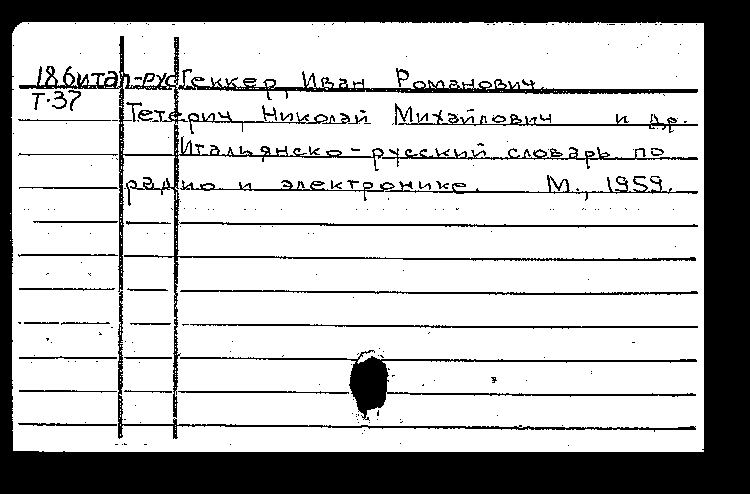 18битал-рус Геккер, Иван Романович.
Т-37
Тетерич, Николай Михайлович и др.
Итальянско-русский словарь по
радио и электронике. М., 1959.